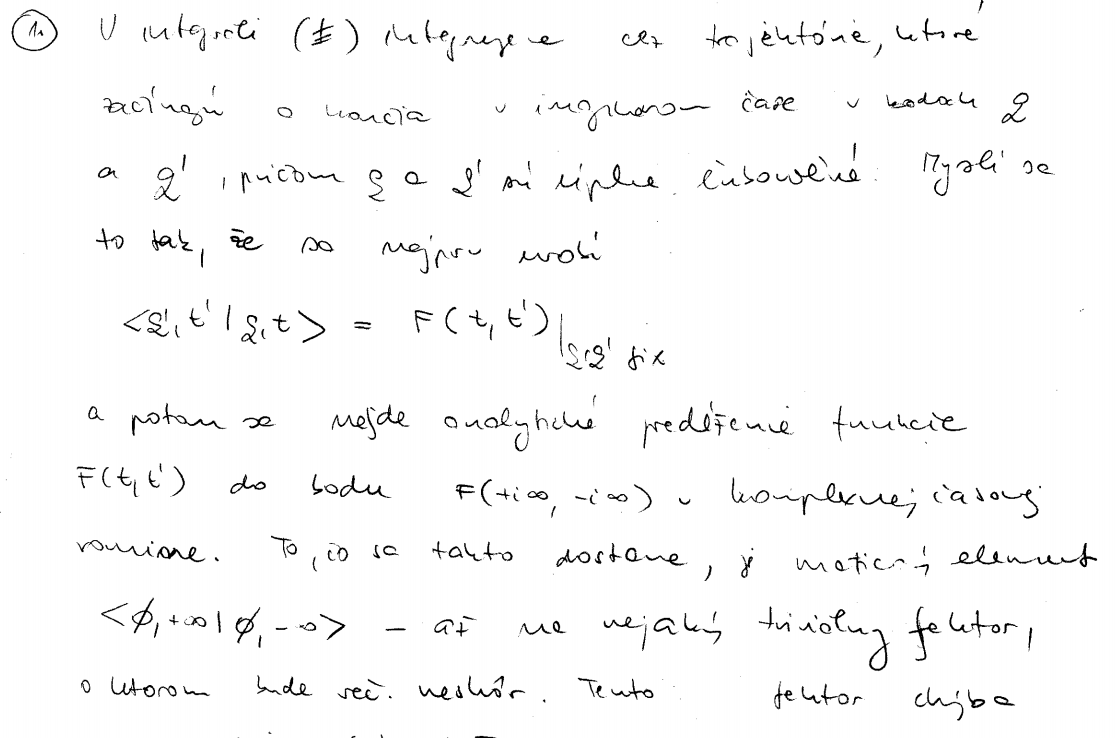 1. V integráli (⧧) integrujeme cez trajektórie, ktoré
začínajú a končia v imaginárnom čase v bodoch Q
a Q', pričom Q a Q' sú úplne ľubovoľné. Myslí sa
to tak, že sa najprv urobí
<Q', t' | Q, t> = F(t, t')|Q,Q' fix
a potom sa nájde analytické predĺženie funkcie
F(t, t') do bodu F(+i∞, -i∞) v komplexnej časovej
rovine. To, čo sa takto dostane, je maticový element
<ϕ, +∞ | ϕ, -∞> – až na nejaký triviálny faktor,
o ktorom bude reč neskôr. Tento faktor chýba